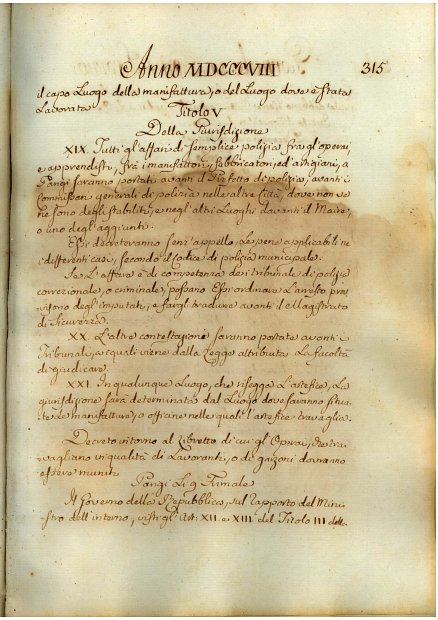 Anno MDCCCVIII
315
il capo Luogo della manifattura, o del Luogo dove è stata
Lavorata
Titolo V
Della Giurisdizione
XIX. Tutti gl'affari di semplice polizia fra gl'operai,
e apprendisti, frà i manifattori, fabbricatori, ed artigiani, a
Parigi saranno portati avanti il Prefetto di polizia, avanti i
Commissari generali di polizia nelle altre Città, dove non ve
ne sono degli stabiliti, e negl'altri Luoghi davanti il Maire,
o uno degl'aggiunti.
Essi decreteranno senz'appello, Le pene applicabili ne
i differenti casi, secondo il Codice di polizia municipale.
Se L'affare è di competenza dei tribunale di polizia
correzionale, o criminale, possano Essi ordinare L'arresto prov
visorio degl'imputati, e fargli tradurre avanti il Magistrato
di Sicurezza.
XX. L'altre contestazioni saranno portate avanti i
Tribunali, a quali viene dalla Legge attribuita La facoltà
di giudicare.
XXI. In qualunque Luogo, che risegga L'artefice, La
giurisdizione sarà determinata dal Luogo dove saranno situa
te Le manifatture, o officine nelle quali l'artefice travaglia.
Decreto intorno al Libretto di cui gl'Operai, che tra
vagliano in qualità di Lavoranti, o di garzoni dovranno
essere muniti
Parigi Li 9 Frimale
Il Governo della Repubblica, sul rapporto del Mini
stro dell'interno, visti gl'Art: XII e XIII del Titolo III dell